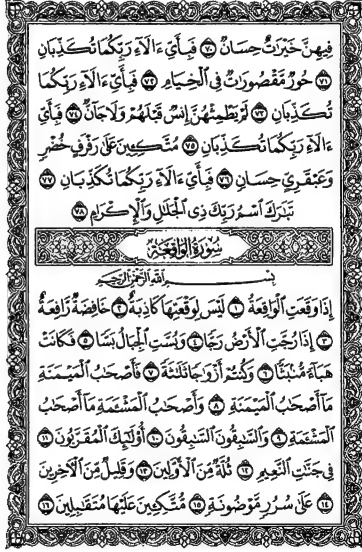 فِيهِنَّ خَيْرَٰتٌ حِسَانٌ ٧٠ فَبِأَىِّ ءَالَآءِ رَبِّكُمَا تُكَذِّبَانِ
٧١ حُورٌ مَّقْصُورَٰتٌ فِى ٱلْخِيَامِ ٧٢ فَبِأَىِّ ءَالَآءِ رَبِّكُمَا
تُكَذِّبَانِ ٧٣ لَمْ يَطْمِثْهُنَّ إِنسٌ قَبْلَهُمْ وَلَا جَآنٌّ ٧٤ فَبِأَىِّ
ءَالَآءِ رَبِّكُمَا تُكَذِّبَانِ ٧٥ مُتَّكِـِٔينَ عَلَىٰ رَفْرَفٍ خُضْرٍ
وَعَبْقَرِىٍّ حِسَانٍ ٧٦ فَبِأَىِّ ءَالَآءِ رَبِّكُمَا تُكَذِّبَانِ ٧٧
تَبَٰرَكَ ٱسْمُ رَبِّكَ ذِى ٱلْجَلَٰلِ وَٱلْإِكْرَامِ ٧٨
سُورَةُ الوَاقِعَةِ
بِسْمِ ٱللَّهِ ٱلرَّحْمَٰنِ ٱلرَّحِيمِ
إِذَا وَقَعَتِ ٱلْوَاقِعَةُ ١ لَيْسَ لِوَقْعَتِهَا كَاذِبَةٌ ٢ خَافِضَةٌ رَّافِعَةٌ
٣ إِذَا رُجَّتِ ٱلْأَرْضُ رَجًّا ٤ وَبُسَّتِ ٱلْجِبَالُ بَسًّا ٥ فَكَانَتْ
هَبَآءً مُّنۢبَثًّا ٦ وَكُنتُمْ أَزْوَٰجًا ثَلَٰثَةً ٧ فَأَصْحَٰبُ ٱلْمَيْمَنَةِ
مَآ أَصْحَٰبُ ٱلْمَيْمَنَةِ ٨ وَأَصْحَٰبُ ٱلْمَشْـَٔمَةِ مَآ أَصْحَٰبُ
ٱلْمَشْـَٔمَةِ ٩ وَٱلسَّٰبِقُونَ ٱلسَّٰبِقُونَ ١٠ أُو۟لَٰٓئِكَ ٱلْمُقَرَّبُونَ ١١
فِى جَنَّٰتِ ٱلنَّعِيمِ ١٢ ثُلَّةٌ مِّنَ ٱلْأَوَّلِينَ ١٣ وَقَلِيلٌ مِّنَ ٱلْـَٔاخِرِينَ
١٤ عَلَىٰ سُرُرٍ مَّوْضُونَةٍ ١٥ مُّتَّكِـِٔينَ عَلَيْهَا مُتَقَٰبِلِينَ ١٦